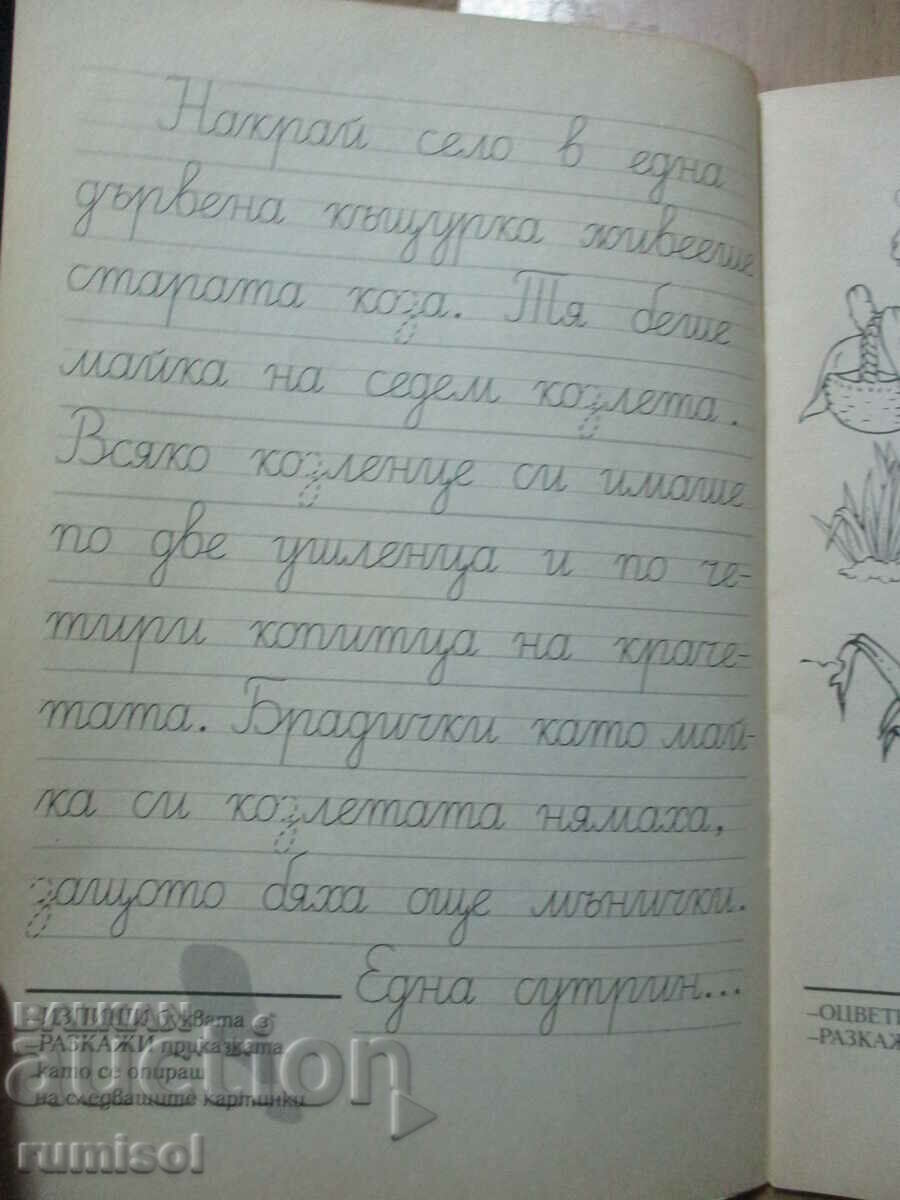 Накрай село в една
дървена къщурка живееше
старата коза. Тя беше
майка на седем козлета.
Всяко козленце си имаше
по две ушленца и по че-
тири копитца на краче-
тата. Брадички като май-
ка си козлетата нямаха,
защото бяха още мънички.
Една сутрин...
-ИЗПИШИ буквата з
-РАЗКАЖИ приказката
като се опираш
на следващите картинки
-ОЦВЕТИ
-РАЗКАЖ
BALKAN
auction
rumisol